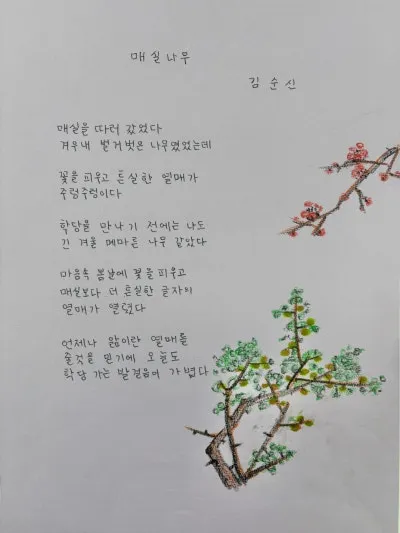 매실나무
김순신
매실을 따러 갔었다
겨우내 벌거벗은 나무였었는데
꽃을 피우고 튼실한 열매가
주렁주렁이다
학당을 만나기 전에는 나도
긴 겨울 메마른 나무 같았다
마음속 봄날에 꽃을 피우고
매실보다 더 튼실한 글자의
열매가 열렸다
언제나 앎이란 열매를
줄것을 믿기에 오늘도
학당 가는 발걸음이 가볍다